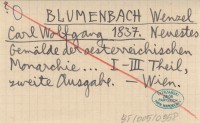 BLUMENBACH Wenzel
Carl Wolfgang 1837. Neuestes
Gemälde der oesterreichischen
Monarchie... I-III Theil,
zweite Ausgabe. — Wien.